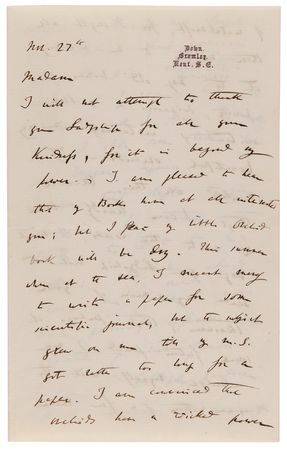 Nov. 27th
Down.
Bromley.
Kent. S.E.
Madam
I will not attempt to thank
your Ladyship for all your
kindness, for it is beyond my
power. I am pleased to hear
that my Books have at all interested
you; but I fear my little Orchid
book will be dry. This summer
when at the sea, I meant merely
to write a paper for some
scientific journal, but the subject
grew on me till my M.S.
got rather too long for a
paper. I am convinced that
Orchids have a wicked power